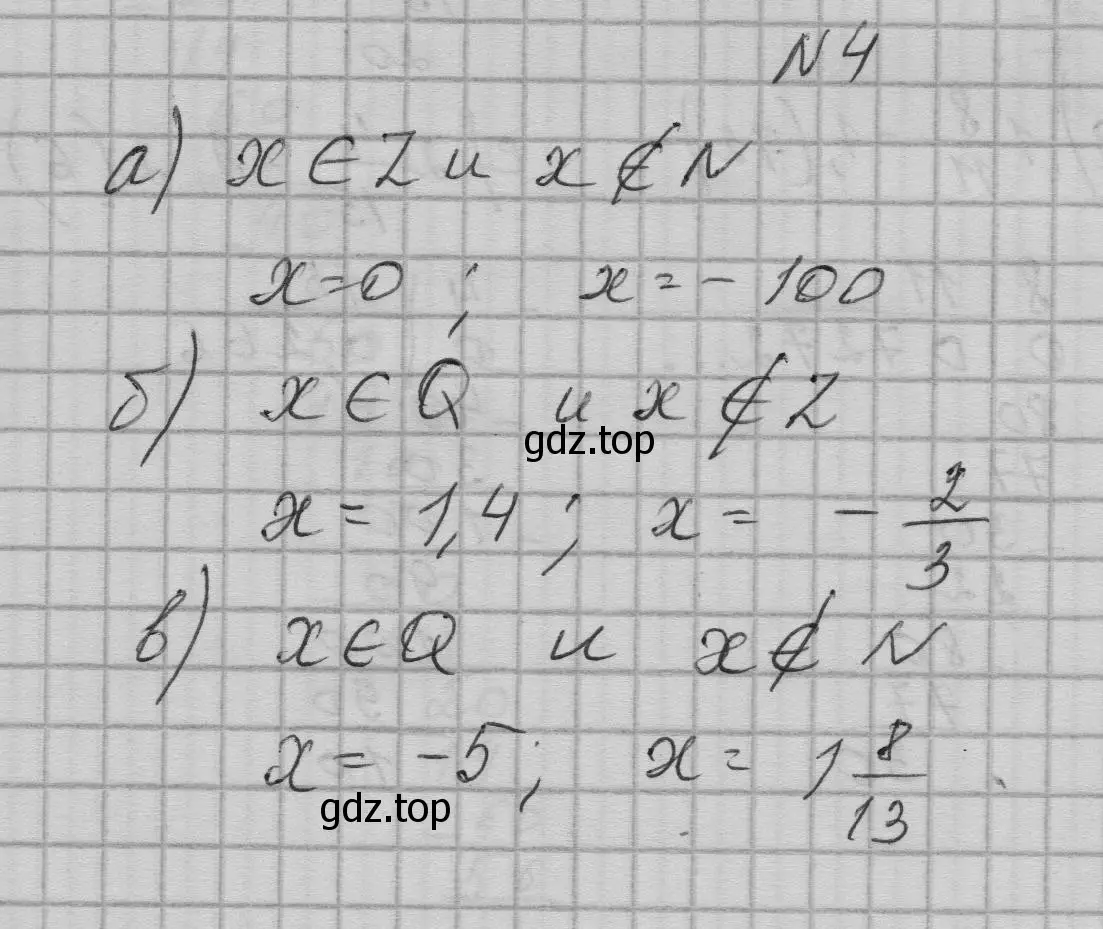 N 4
а) x ∈ Z и x ∉ N
x = 0 ; x = - 100
б) x ∈ Q и x ∉ Z
gdz.top
x = 1,4 ; x = - 2/3
в) x ∈ Q и x ∉ N
x = -5 ; x = 1 8/13
gdz.top